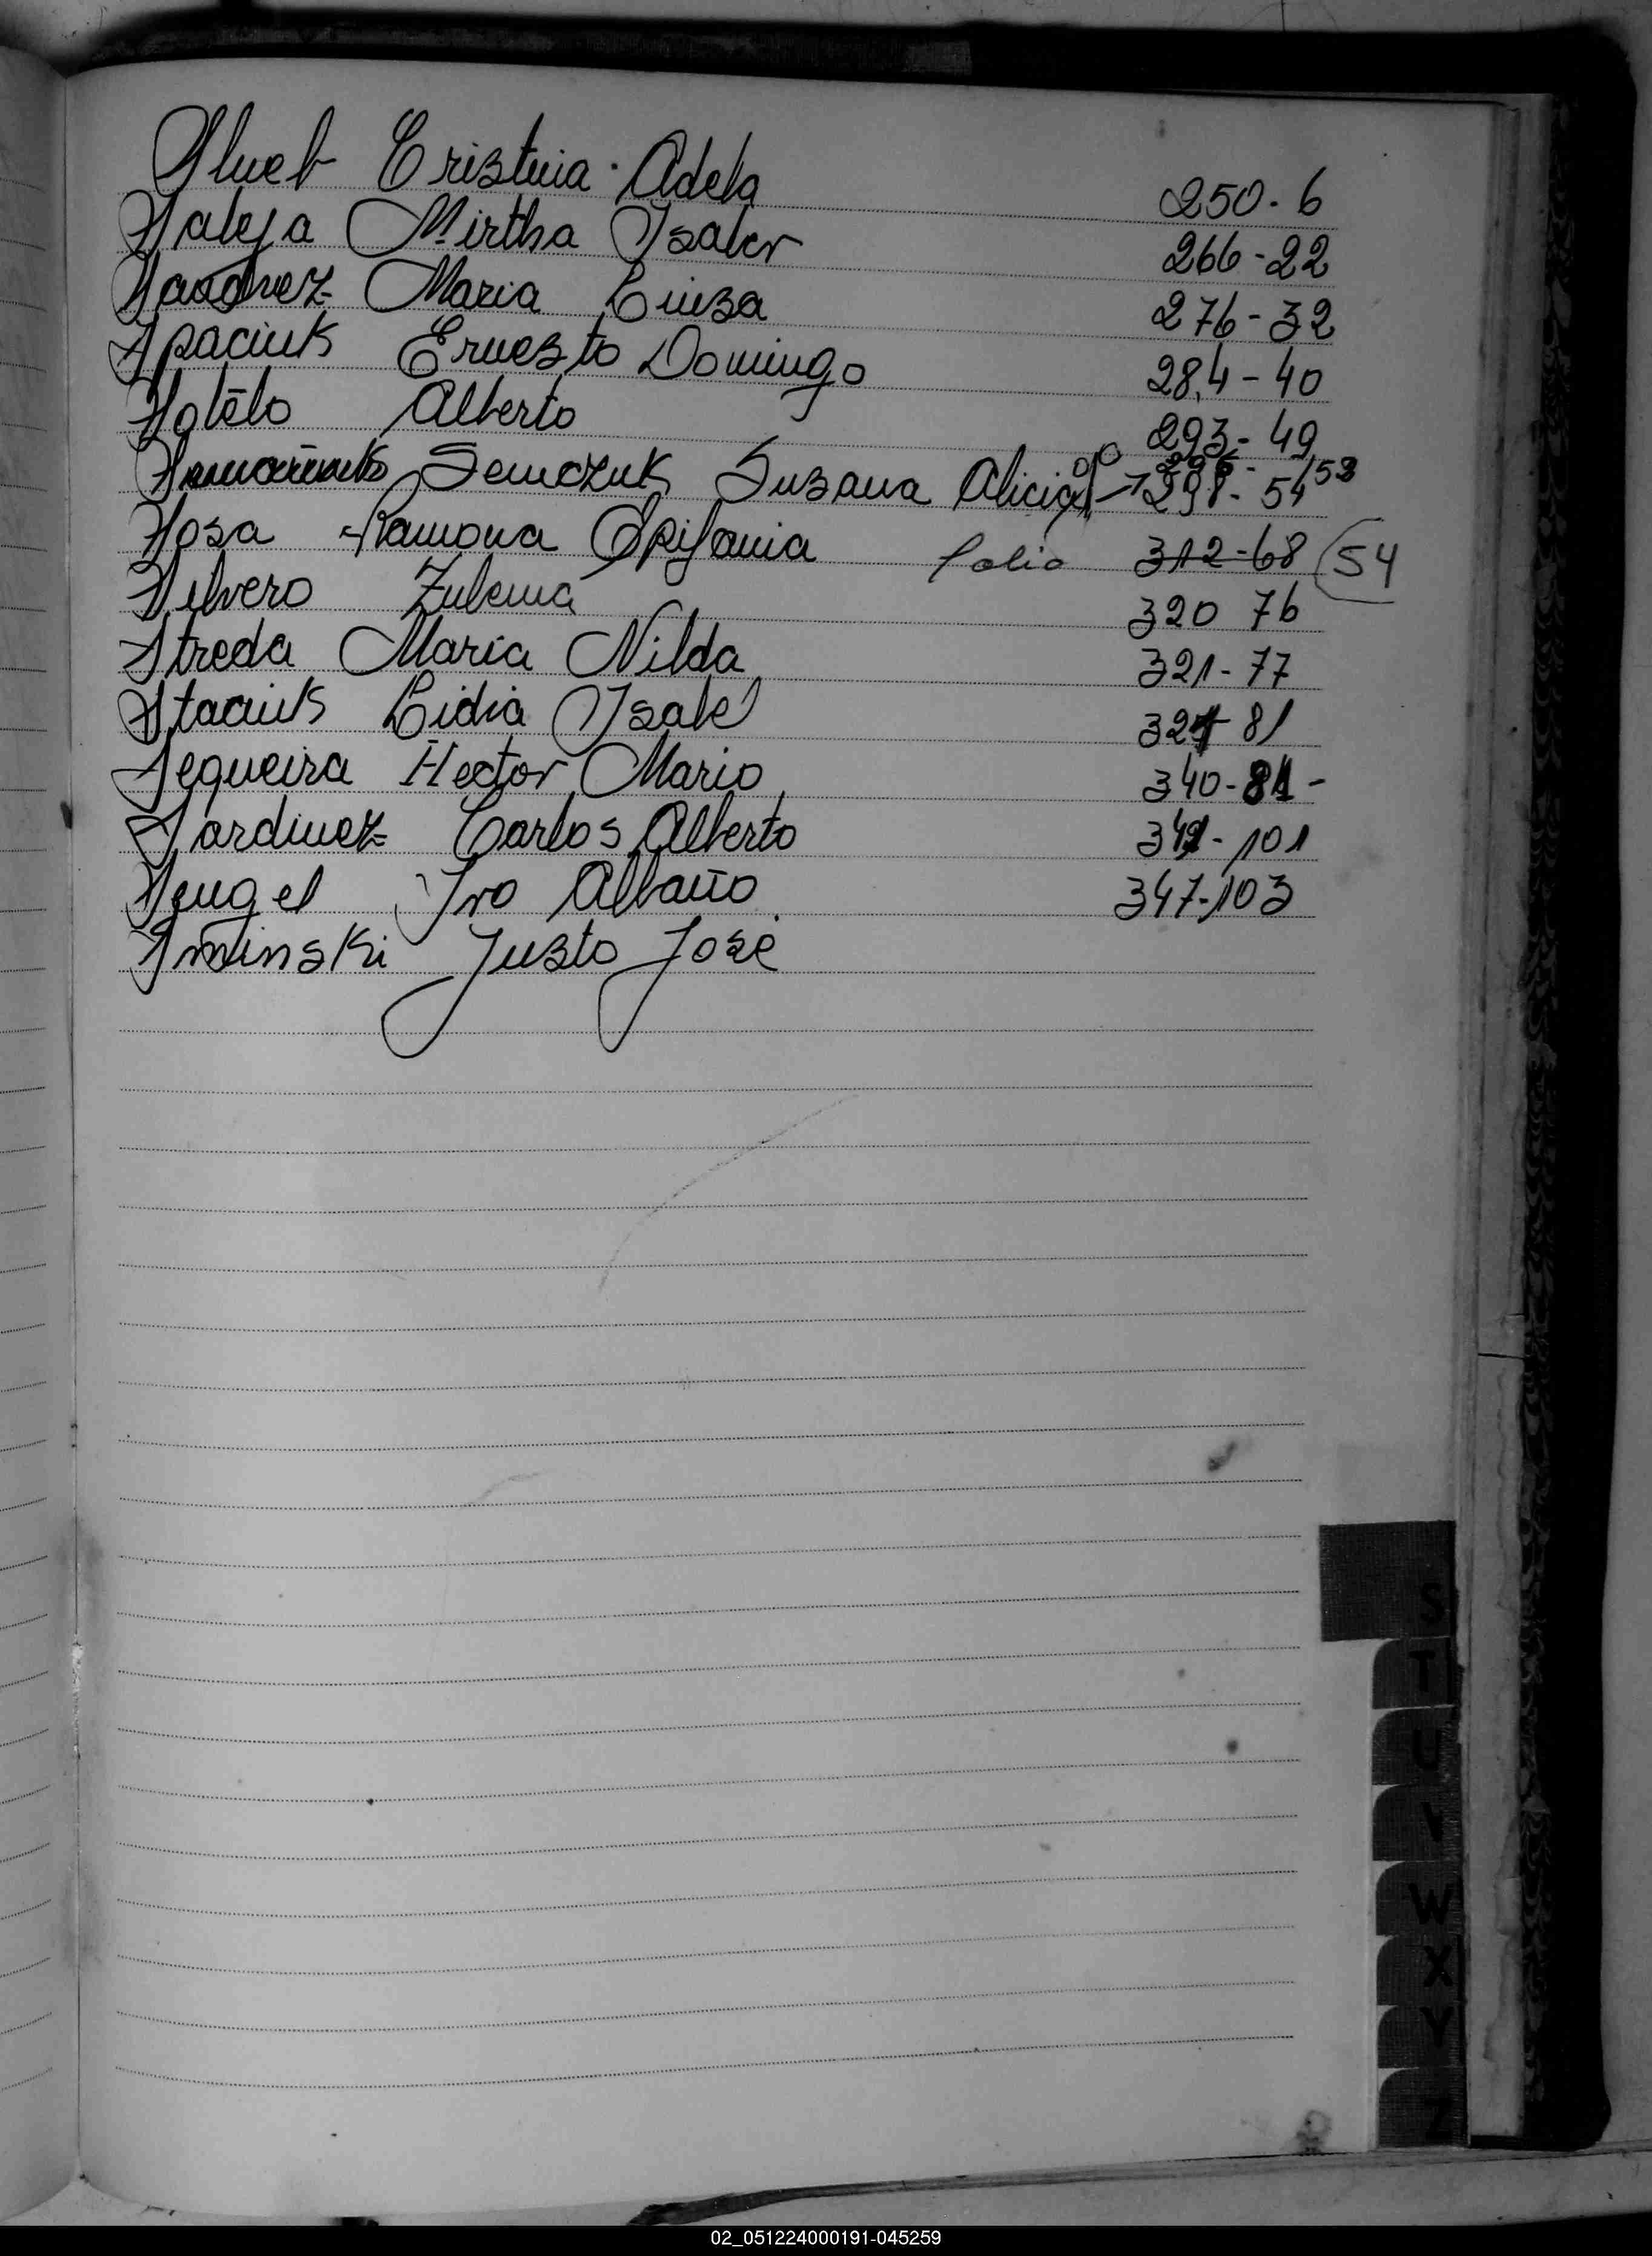 Slueb Cristina Adela 250-6
Mirtha Isabel 266-22
Maria Luisa 276-32
Spaciuk Ernesto Domingo 284-40
Sotelo Alberto 293-49
Semczuk Susana Alicia 298-54 53
Sosa Ramona Epifania folio 312-68 54
Silvero Zulema 320 76
Streda Maria Nilda 321-77
Staciuk Lidia Isabel 324 81
Sequeira Hector Mario 340-
Sardinez Carlos Alberto -101
Sengel Ivo Albano 347-103
Sminski Justo José
S
T
U
V
W
X
Y
Z
02_051224000191-045259